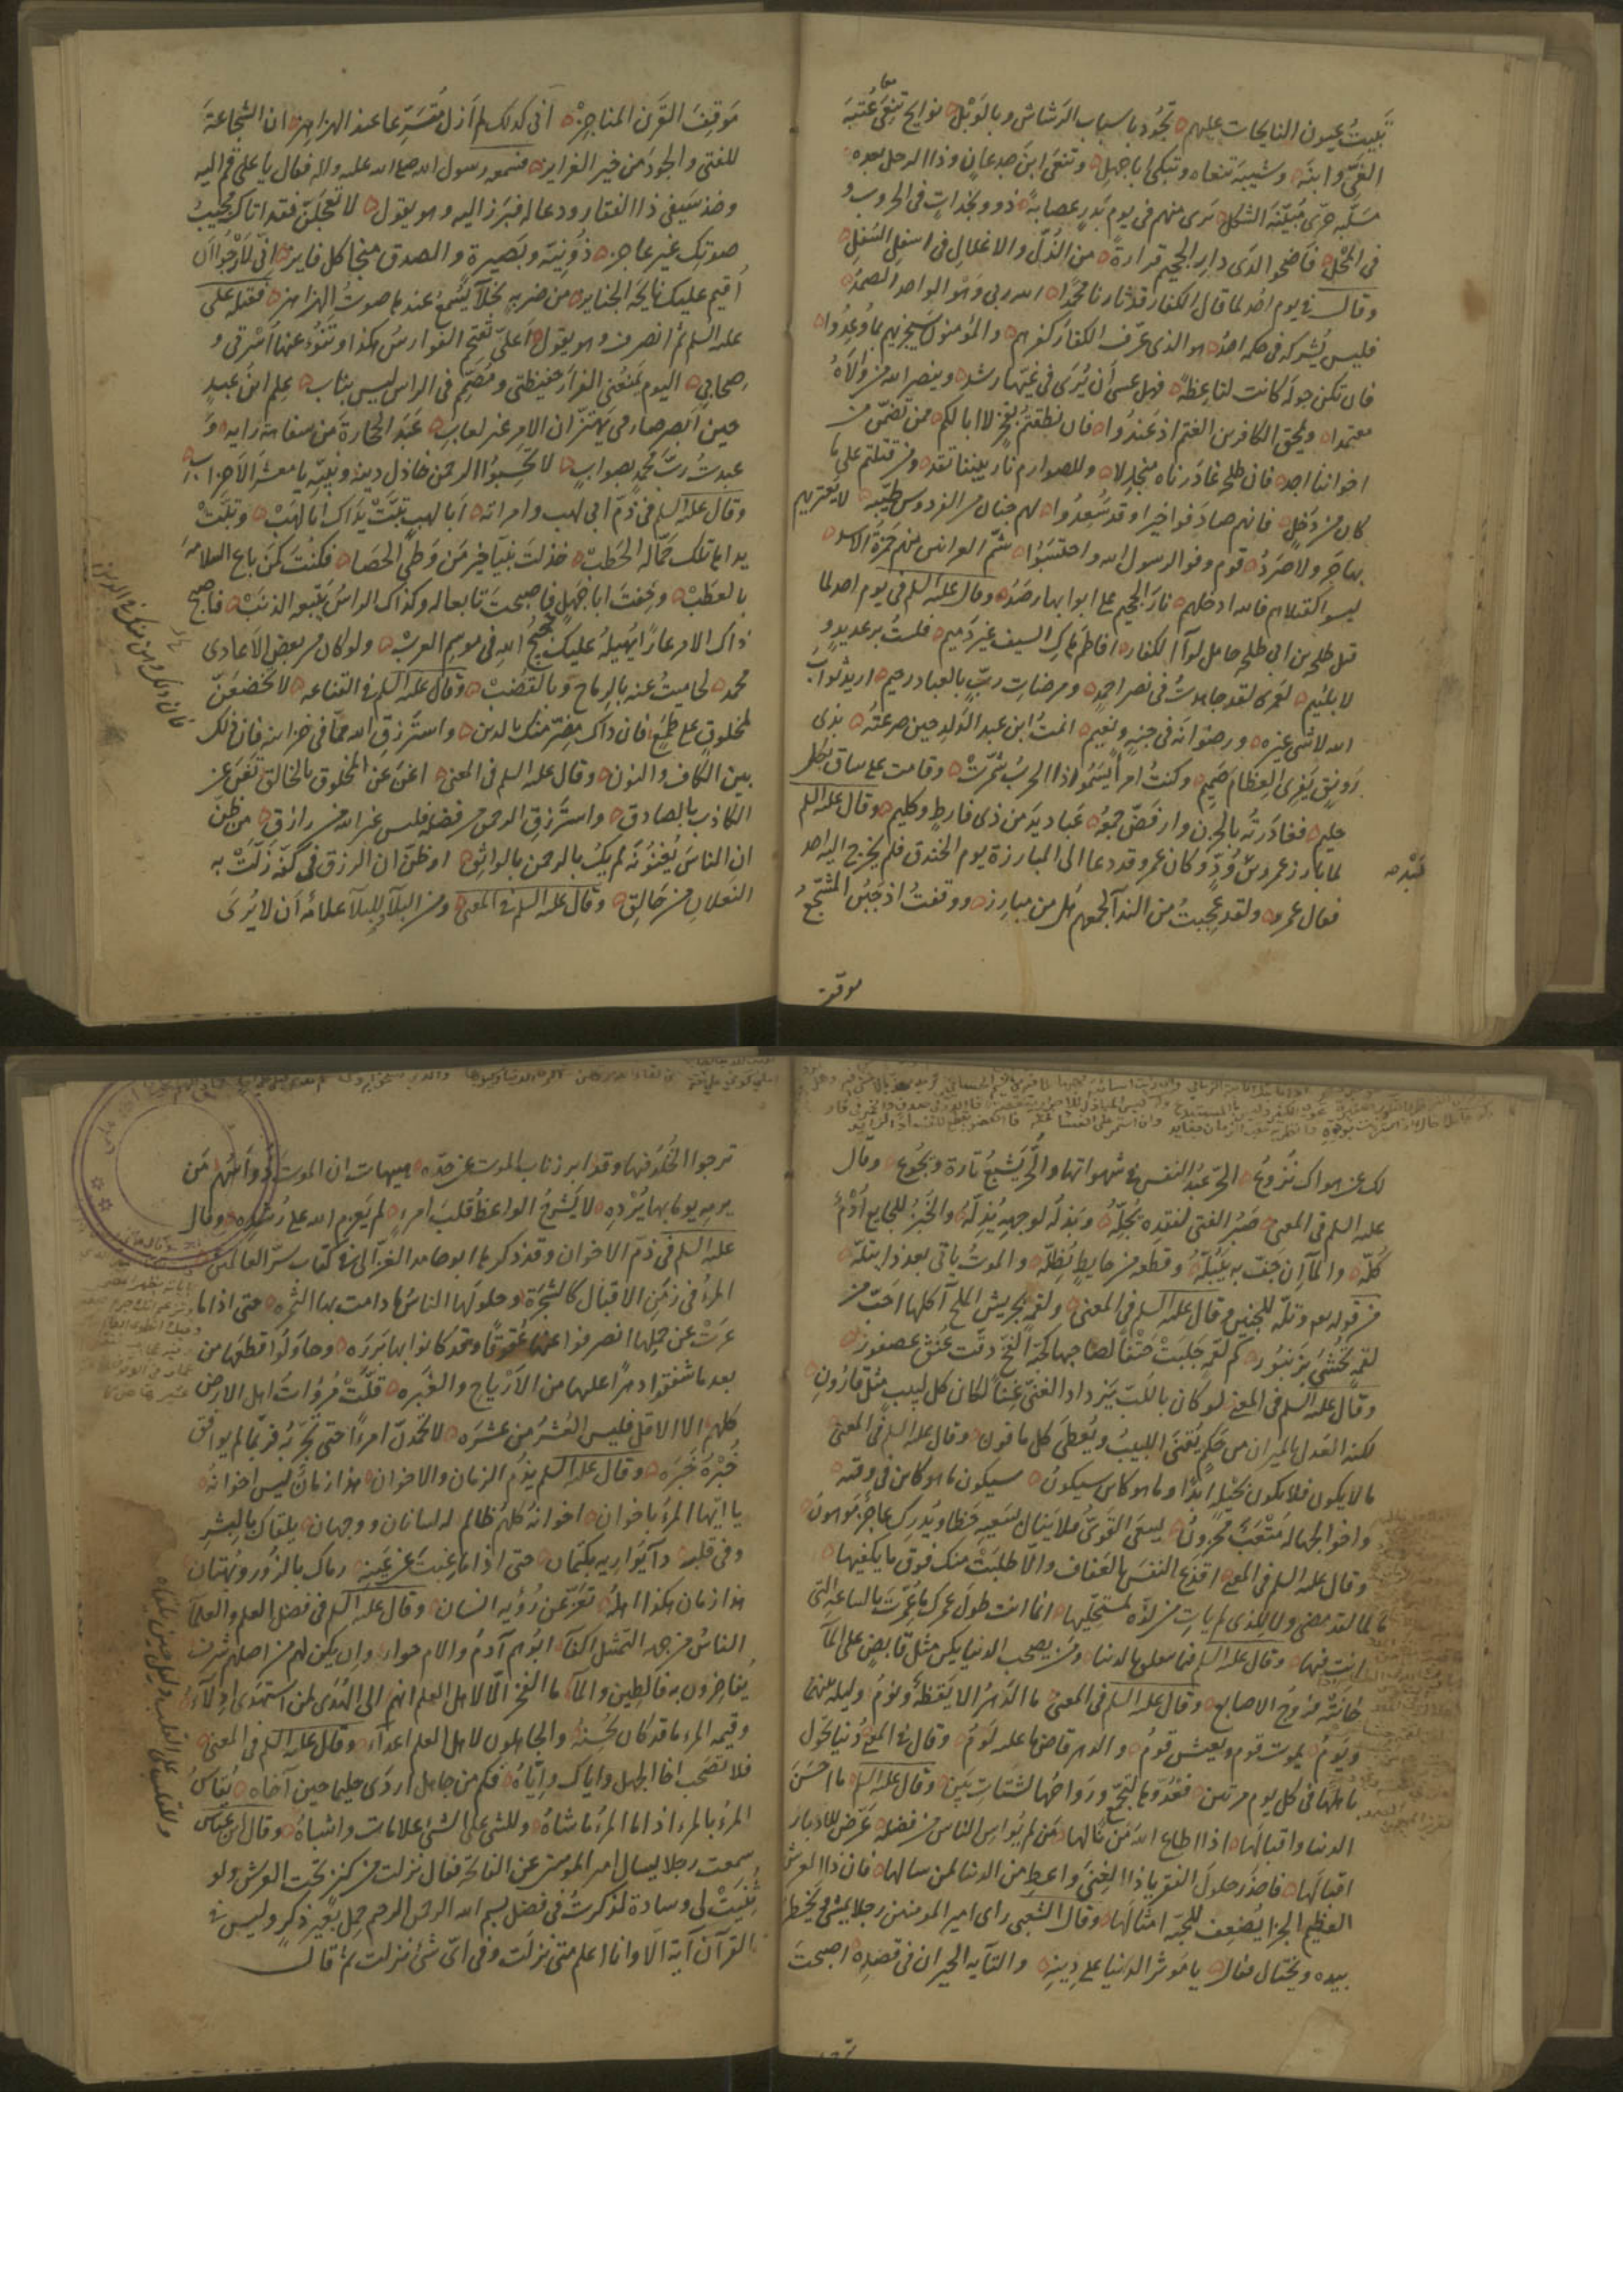 تبيت عيون النايحات عليهم تجود باسباب الرشاش وبالوبل نوايح تنعى عتبة
الغي وابنه وشيبة تنعاه وتبكى ابا جهل وتنعى ابن جدعان وذا الرجل بعده
مسلبه حرى مبينة الثكل ترى منهم فى يوم بدر عصابة ذوو نجدات فى الحروب و
فى المحل فاضحوا لدى دار الجحيم قرارة من الذل والاغلال فى اسفل السفل
وقال فى يوم احد لما قال الكفار قد ثارنا محمدا الله ربى وهو الواحد الصمد
فليس يشركه فى حكمه احد هو الذى عرف الكفار كفرهم والمؤمنون سيجزيهم بما وعدوا
فان تكن جولة كانت لنا عظة فهل عسى ان يرى فى غيها رشد وينصر الله من والاه
معتمدا ويمحق الكافرين الغتم اذ عندوا فان نطقتم بفخر لا ابا لكم ممن تضمن من
اخواننا احد فان طلحة غادرناه منجدلا وللصوارم نار بيننا تقد ومن قتلتم على ما
كان من دخل فانهم صادفوا خيرا وقد سعدوا لهم جنان من الفردوس طيبة لا يعتريهم
بها حر ولا صرد قوم وفوا لرسول الله واحتسبوا شم العرانين منهم حمزة الاسد
ليسوا كقتلاهم فالله ادخلهم نار الجحيم على ابوابها رصد وقال عليه السلم فى يوم احد لما
قتل طلحة بن ابى طلحة حامل لوآ الكفار افاطم هاك السيف غير ذميم فلست برعديد و
لا بلئيم لعمرى لقد جاهدت فى نصر احمد ومرضات رب بالعباد رحيم اريد ثواب
الله لا شى غيره ورضوانه فى جنة ونعيم اممت ابن عبد الدار حين صرعته بذى
رونق يفرى العظام صميم وكنت امرأ يسموا اذا الحرب شمرت وقامت على ساق بكل
حليم فغادرته بالحزن وارفض جمعه عباديد من ذى فارط وكليم وقال عليه السلم
لما بارز عمرو بن ود وكان عمرو قد دعا الى المبارزة يوم الخندق فلم يخرج اليه احد
فقال عمرو ولقد عجبت من الندآ لجمعهم هل من مبارز ووقفت اذ جبن المشجع
موقف
موقف القرن المناجز انى كذلك لم ازل متسرعا عند الهزاهز ان الشجاعة
للفتى والجود من خير الغرايز فسمعه رسول الله صلى الله عليه واله فقال يا على قم اليه
وخذ سيفى ذا الفقار ودعا له فبرز اليه وهو يقول لا تعجلن فقد اتاك مجيب
صوتك غير عاجز ذو نية وبصيرة والصدق منجا كل فايز انى لارجوا ان
اقيم عليك نايحة الجنايز من ضربة نجلآ يسمع عندها صوت الهزاهز فقتله على
عليه السلم ثم انصرف وهو يقول اعلى تفتح الفوارس هكذا وتنوء عنها اسرتى و
صحابى اليوم يمنعنى الفرار حفيظتى ومصمم فى الراس ليس بناب علم ابن عبد
حين ابصر صارمى يهتز ان الامر غير لعاب عبد الحجارة من سفاهة رايه و
عبدت رب محمد بصواب لا تحسبوا الرحمن خاذل دينه ونبيه يا معشر الاحزاب
وقال عليه السلم فى ذم ابى لهب وامراته ابا لهب تبت يداك ابا لهب وتبت
يداها تلك حمالة الحطب خذلت نبيا خير من وطى الحصا فكنت كمن باع السلامة
بالعطب وخفت ابا جهل فاصبحت تابعا له وكذاك الراس يتبعه الذنب فاصبح
ذاك الامر عارا يهيله عليك حجيج الله فى موسم العرب ولو كان من بعض الاعادى
محمد لحاميت عنه بالرماح وبالقضب وقال عليه السلم فى القناعة لا تخضعن
لمخلوق على طمع فان ذاك مضر منك بالدين واسترزق الله مما فى خزاينه فان ذلك
بين الكاف والنون وقال عليه السلم فى المعنى اغن عن المخلوق بالخالق تغن عن
الكاذب بالصادق واسترزق الرحمن من فضله فليس غير الله من رازق من ظن
ان الناس يغنونه لم يك بالرحمن بالواثق او ظن ان الرزق فى كفه زلت به
النعلان من حالق وقال عليه السلم فى المعنى ومن البلآ وللبلآ علامة ان لا يرى
لك عن هواك نزوع الحر عبد النفس فى شهواتها والحر يشبع تارة ويجوع وقال
عليه السلم فى المعنى صبر الفتى لفقده يجله وبذله لوجهه يذله والخبز للجايع ادم
كله والمآ ان جفت به يبله وقطعة من حايط تظله والموت ياتى بعد ذا يتله
من قوله تعه وتله للجبين وقال عليه السلم فى المعنى ولقمة بجريش الملح آكلها احب من
لقمة تحشى بزنبور كم لقمة جلبت حتفا لصاحبها كحبة الفخ دقت عنق عصفور
وقال عليه السلم فى المعنى لو كان باللب يزداد الغنى غنا لكان كل لبيب مثل قارون
لكنه العدل بالميزان من حكم يقنى اللبيب ويعطى كل مافون وقال عليه السلم فى المعنى
ما لا يكون فلا يكون بحيلة ابدا وما هو كاين سيكون سيكون ما هو كاين فى وقته
واخو الجهالة متعب محزون يسعى القوى فلا ينال بسعيه حظا ويدرك عاجز موهون
وقال عليه السلم فى المعنى اقنع النفس بالعفاف والا طلبت منك فوق ما يكفيها
ما لما لقد مضى ولا للذى لم يات من لذة لمستحليها انما انت طول عمرك ما عمرت بالساعة التى
انت فيها وقال عليه السلم فيما يتعلق بالدنيا ومن يصحب الدنيا يكن مثل قابض على المآ
خانته فروج الاصابع وقال عليه السلم فى المعنى ما الدهر الا يقظة ونوم وليلة بينهما
ويوم يموت قوم ويعيش قوم والدهر قاض ما عليه لوم وقال فى المعنى دنيا تحول
باهلها فى كل يوم مرتين فغدوها لتجمع ورواحها لشتات بين وقال عليه السلم ما احسن
الدنيا واقبالها اذا اطاع الله من نالها من لم يواس الناس من فضله عرض للادبار
اقبالها فاحذر حلول الفقر ياذا الغنى واعط من الدنيا لمن سالها فان ذا العرش
العظيم الجزا يضعف للحبة امثالها وقال الشعبى راى امير المومنين رجلا يمشى ويخطر
بيده ويختال فقال يا موثر الدنيا على دينه والتايه الحيران فى قصده اصبحت
ترجوا الخلد فيها وقد ابرز ناب الموت عن حده هيهات ان الموت ذو اسهم من
يرمه يوما بها يرده لا يشرح الواعظ قلب امرء لم يعزم الله على رشده وقال
عليه السلم فى ذم الاخوان وقد ذكرها ابو حامد الغزالى فى كتاب سر العالمين
المرء فى زمن الاقبال كالشجرة وحولها الناس ما دامت بها الثمرة حتى اذا ما
عرت عن حملها انصرفوا عنها عقوقا وقد كانوا بها بررة وحاولوا قطعها من
بعد ما شفقوا دهرا عليها من الارياح والغبره قلت مروات اهل الارض
كلهم الا الاقل فليس العشر من عشره لا تحمدن امرءا حتى تجربه فربما لم يوافق
خبره خبره وقال عليه السلم يذم الزمان والاخوان هذا زمان ليس اخوانه
يا ايها المرء باخوان اخوانه كلهم ظالم له لسانان ووجهان يلقاك بالبشر
وفى قلبه دآ يواريه بكتمان حتى اذا ما غبت عن عينه رماك بالزور وبهتان
هذا زمان هكذا اهله تعز عن رؤية انسان وقال عليه السلم فى فضل العلم والعلمآ
الناس من جهة التمثل اكفآ ابوهم آدم والام حواء وان يكن لهم من اصلهم شرف
يفاخرون به فالطين والمآ ما الفخر الا لاهل العلم انهم الى الهدى لمن استهدى ادلآء
وقيمة المرء ما قد كان يحسنه والجاهلون لاهل العلم اعدآء وقال عليه السلم فى المعنى
فلا تصحب اخا الجهل واياك واياه فكم من جاهل اردى حليما حين آخاه يقاس
المرء بالمرء اذا ما المرء ما شاه وللشى على الشى علامات واشباه وقال ابن عباس
سمعت رجلا يسال امير المومنين عن الفاتحة فقال نزلت من كنز تحت العرش ولو
ثنيت لى وسادة لذكرت فى فضل بسم الله الرحمن الرحيم حمل بعير ذكر وليس فى
القرآن آية الا وانا اعلم متى نزلت وفى اى شئ نزلت ثم قال
وللقلب على القلب دليل حين يلقاه